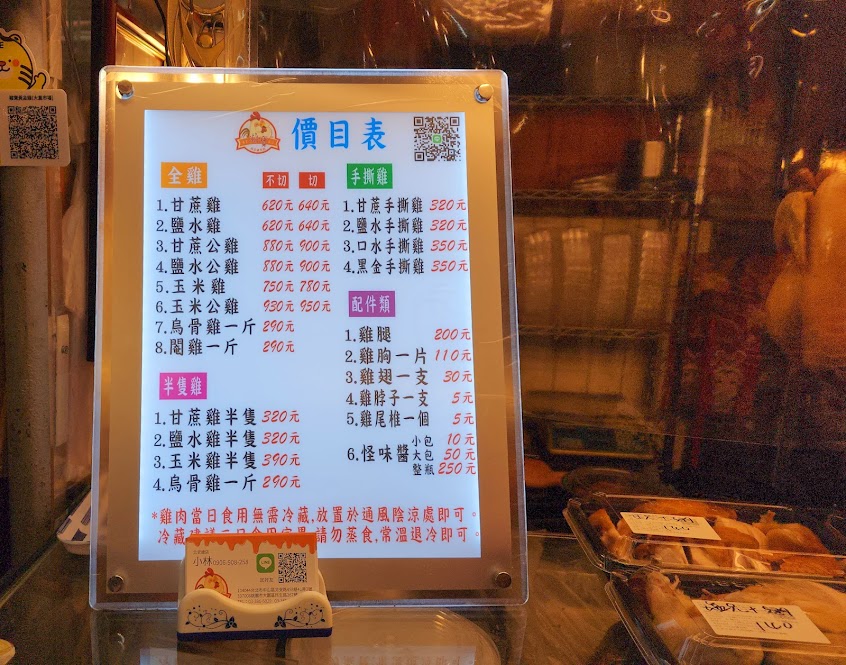 價目表
全雞 不切 切
1.甘蔗雞 620元 640元
2.鹽水雞 620元 640元
3.甘蔗公雞 880元 900元
4.鹽水公雞 880元 900元
5.玉米雞 750元 780元
6.玉米公雞 930元 950元
7.烏骨雞一斤 290元
8.閹雞一斤 290元
半隻雞
1.甘蔗雞半隻 320元
2.鹽水雞半隻 320元
3.玉米雞半隻 390元
4.烏骨雞一斤 290元
手撕雞
1.甘蔗手撕雞 320元
2.鹽水手撕雞 320元
3.口水手撕雞 350元
4.黑金手撕雞 350元
配件類
1.雞腿 200元
2.雞胸一片 110元
3.雞翅一支 30元
4.雞脖子一支 5元
5.雞尾椎一個 5元
6.怪味醬 小包 10元
大包 50元
整瓶 250元
*雞肉當日食用無需冷藏,放置於通風陰涼處即可。
冷藏 請勿蒸食,常溫退冰即可。
小林
140
140